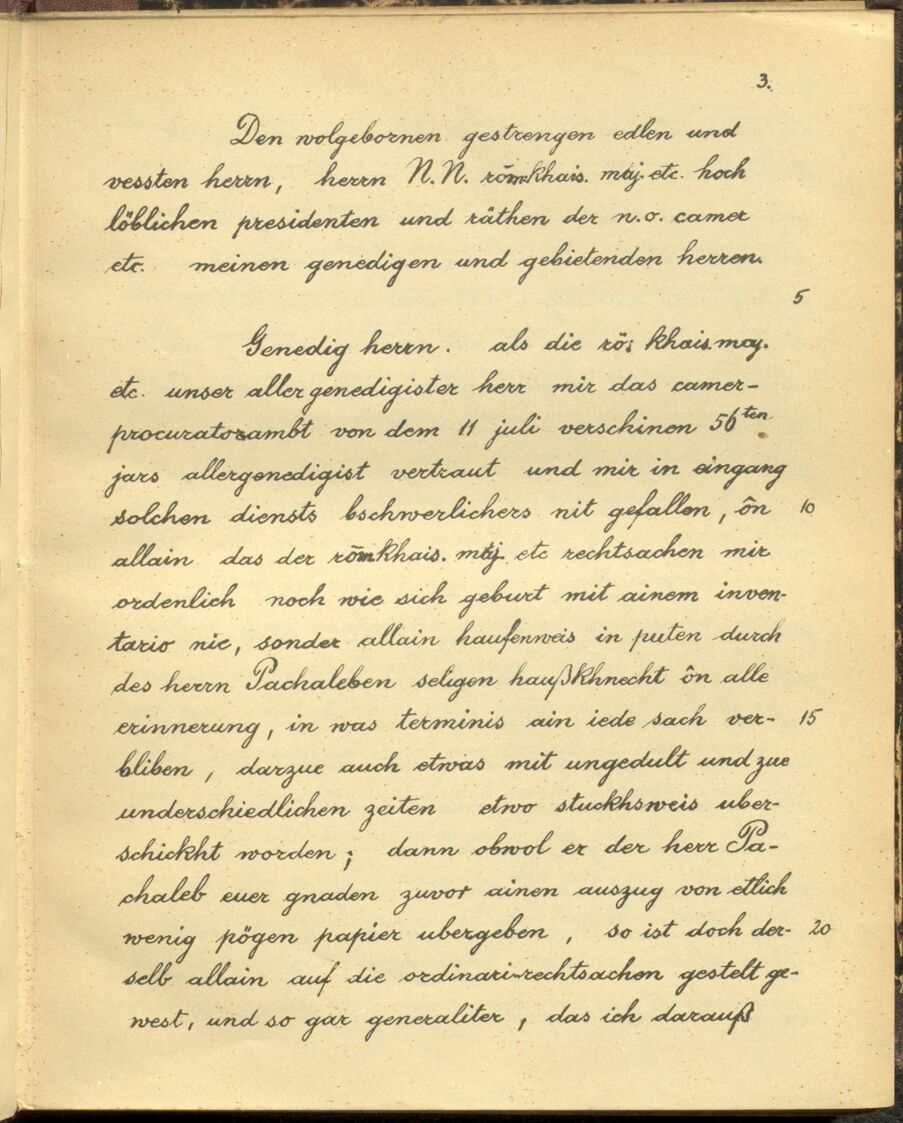 3.
Den wolgebornen gestrengen edlen und
vessten herrn, herrn N.N. röm khais. maj. etc. hoch
löblichen presidenten und räthen der n.o. camer
etc. meinen genedigen und gebietenden herren.
5
Genedig herrn. als die rö: khais. may.
etc. unser allergenedigister herr mir das camer-
procuratorambt von dem 11 juli verschinen 56ten
jars allergenedigist vertraut und mir in eingang
solchen diensts bschwerlichers nit gefallen, ôn 10
allain das der röm khais. maj. etc rechtsachen mir
ordenlich noch wie sich geburt mit ainem inven-
tario nie, sonder allain haufenweis in puten durch
des herrn Pachaleben seligen haußkhnecht ôn alle
erinnerung, in was terminis ain iede sach ver- 15
bliben, darzue auch etwas mit ungedult und zue
underschiedlichen zeiten etwo stuckhsweis uber-
schickht worden; dann obwol er der herr Pa-
chaleb euer gnaden zuvor ainen auszug von etlich
wenig pögen papier ubergeben, so ist doch der- 20
selb allain auf die ordinari-rechtsachen gestelt ge-
west, und so gar generaliter, das ich darauß